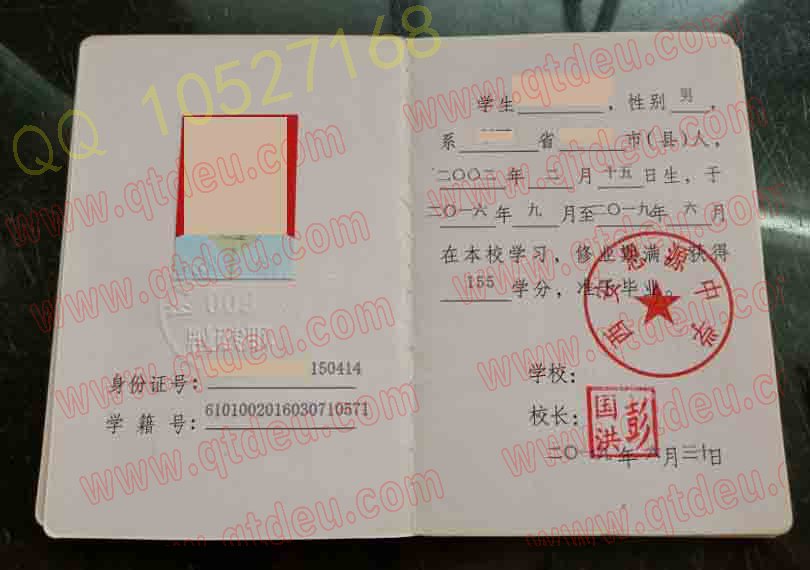 QQ 10527168
www.qtdeu.com
身份证号：150414
学籍号：6101002016030710571
学生 ，性别 男 ，
系 省 市(县)人，
二〇〇三年 二 月 十五日生，于
二〇一六年 九 月至二〇一九年 六 月
在本校学习，修业期满，获得
155 学分，准予毕业。
源中学
学校：
校长：
彭国洪
二〇 年 月三十日